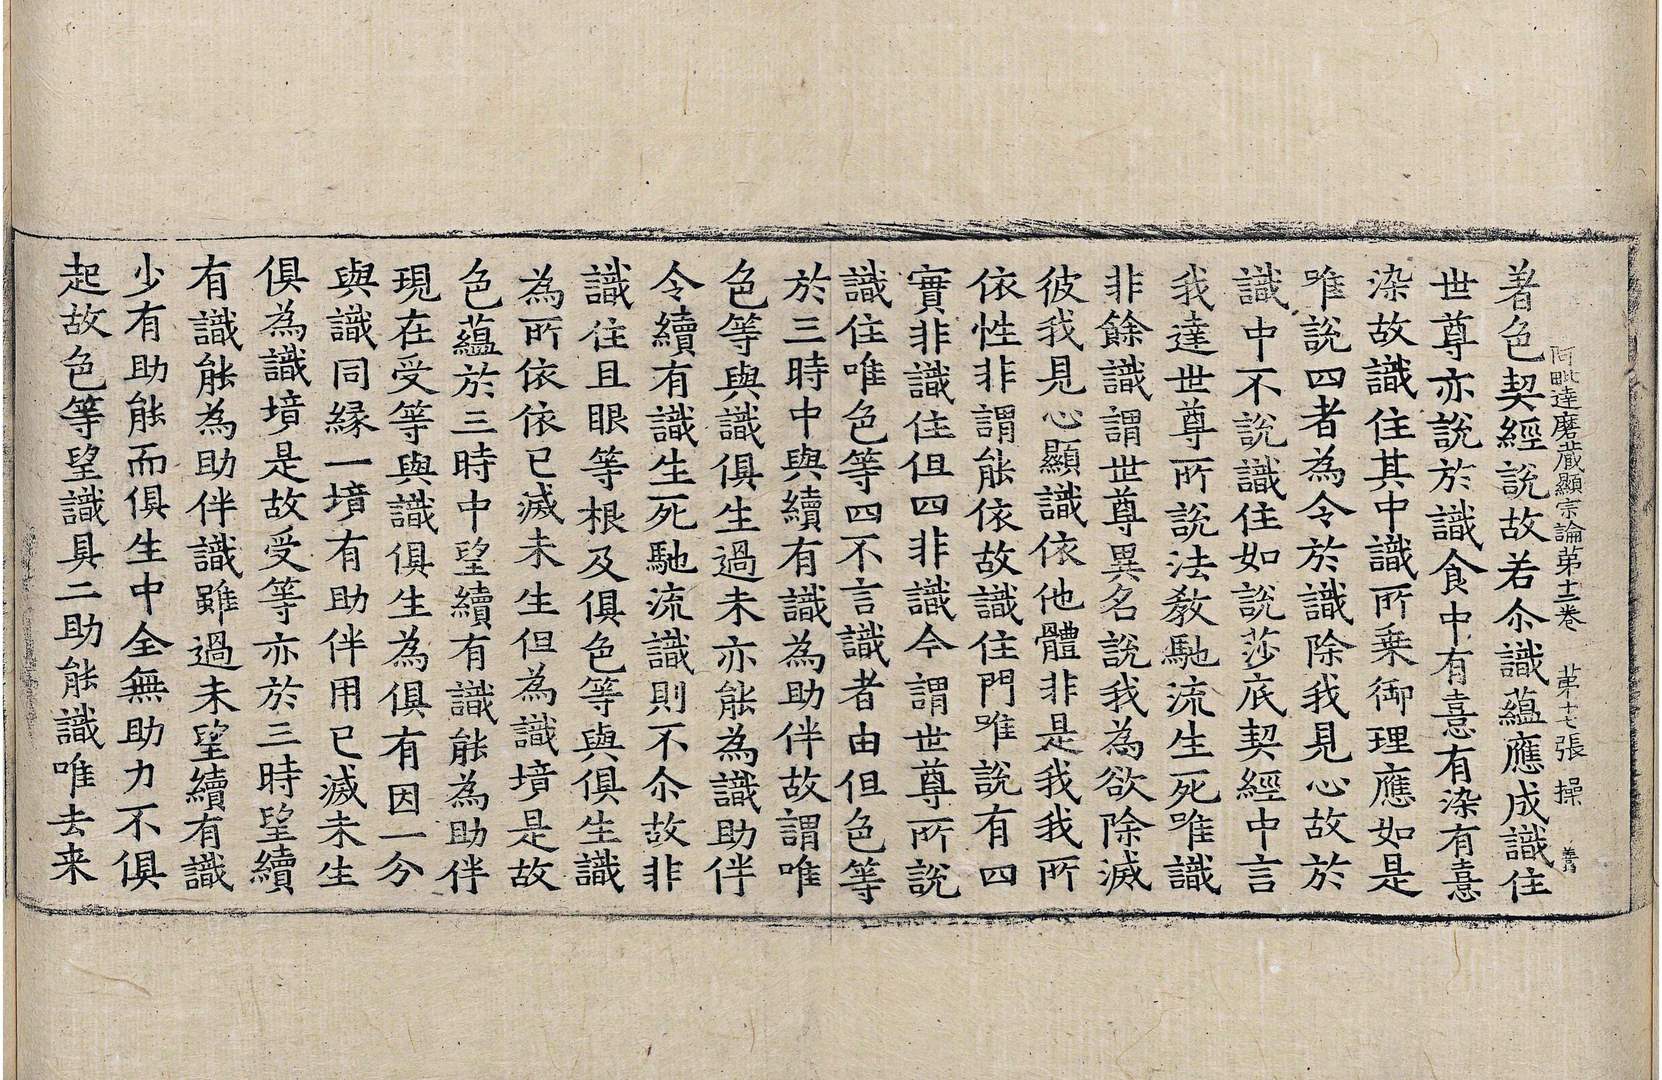 阿毗達磨藏顯宗論第十二卷　第十七張　操
著色契經說故若尒識蘊應成識住
世尊亦說於識食中有憙有染有憙
染故識住其中識所乗御理應如是
唯說四者為令於識除我見心故於
識中不說識住如說莎底契經中言
我達世尊所說法教馳流生死唯識
非餘識謂世尊異名說我為欲除滅
彼我見心顯識依他體非是我我所
依性非謂能依故識住門唯說有四
實非識住但四非識今謂世尊所說
識住唯色等四不言識者由但色等
於三時中與續有識為助伴故謂唯
色等與識俱生過未亦能為識助伴
令續有識生死馳流識則不尒故非
識住且眼等根及俱色等與俱生識
為所依依已滅未生但為識境是故
色蘊於三時中望續有識能為助伴
現在受等與識俱生為俱有因一分
與識同緣一境有助伴用已滅未生
俱為識境是故受等亦於三時望續
有識能為助伴識雖過未望續有識
少有助能而俱生中全無助力不俱
起故色等望識具二助能識唯去来